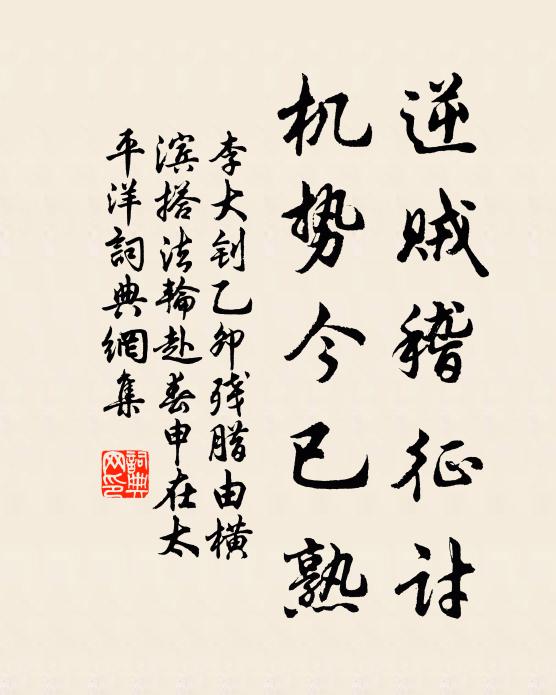 逆贼稽征讨
机势今已熟
李大钊乙卯残腊由横
滨搭法輪赴春申在太
平洋詞典網集
詞典网印